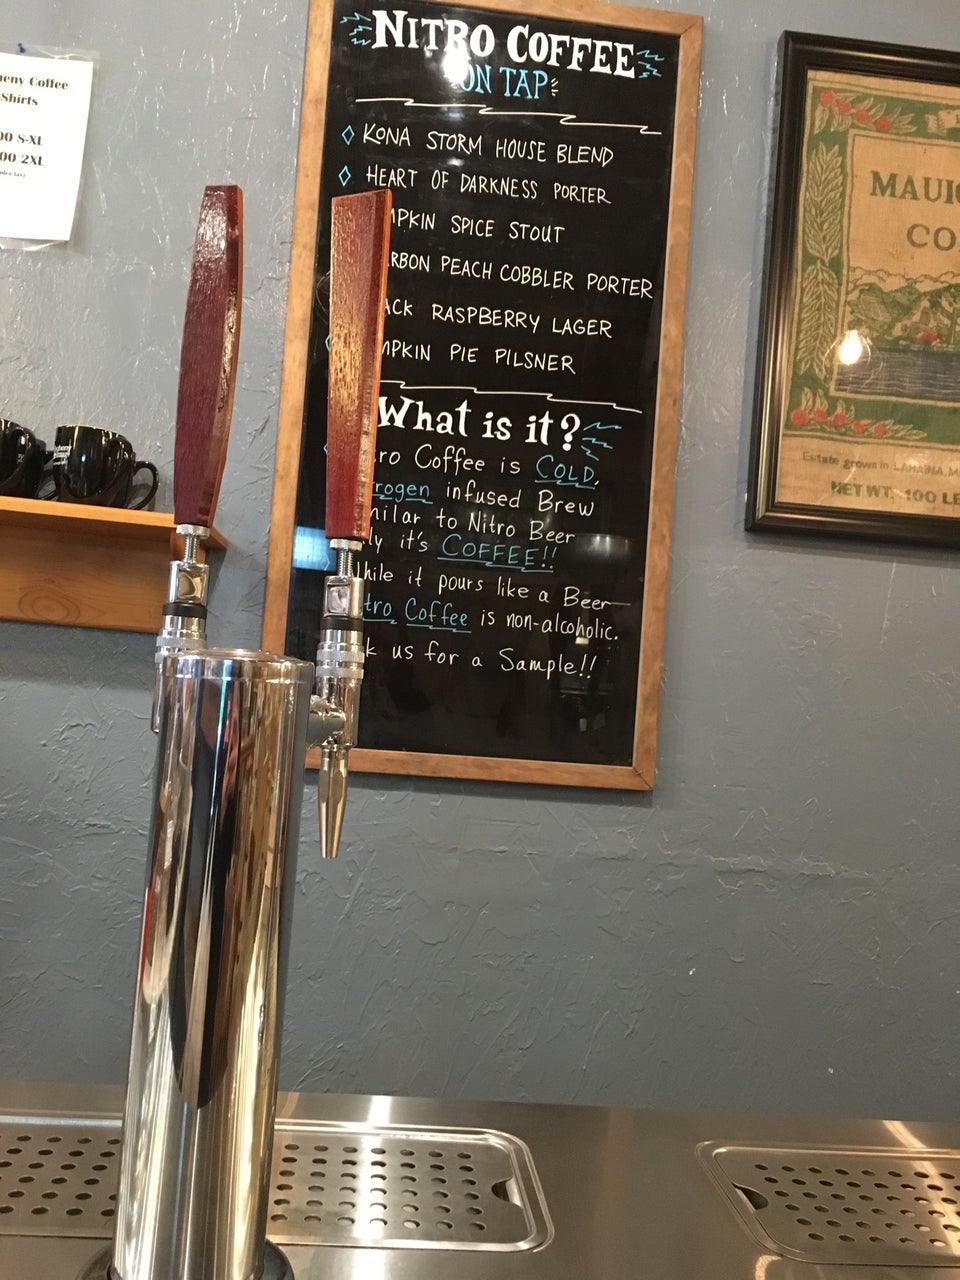 eny Coffee
Shirts
00 S-XL
00 2XL
NITRO COFFEE
ON TAP
KONA STORM HOUSE BLEND
HEART OF DARKNESS PORTER
MPKIN SPICE STOUT
RBON PEACH COBBLER PORTER
ACK RASPBERRY LAGER
MPKIN PIE PILSNER
What is it?
ro Coffee is COLD,
rogen infused Brew
milar to Nitro Beer
ly it's COFFEE!!
hile it pours like a Beer
tro Coffee is non-alcoholic.
k us for a Sample!!
MAUI
CO
Estate grown in LAHAINA, M
NET WT. 100 LB